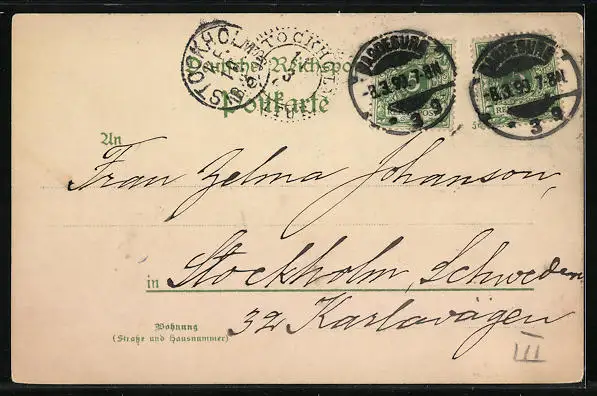 Deutsche Reichspost
Postkarte
STOCKHOLM
MAGDEBURG
-8.3.99.7-8N.
* * 3 9
MAGDEBURG
-8.3.99.7-8N.
* * 3 9
An
Frau Zelma Johanson,
in Stockholm, Schweden
32 Karlavägen
Wohnung
(Straße und Hausnummer)
III